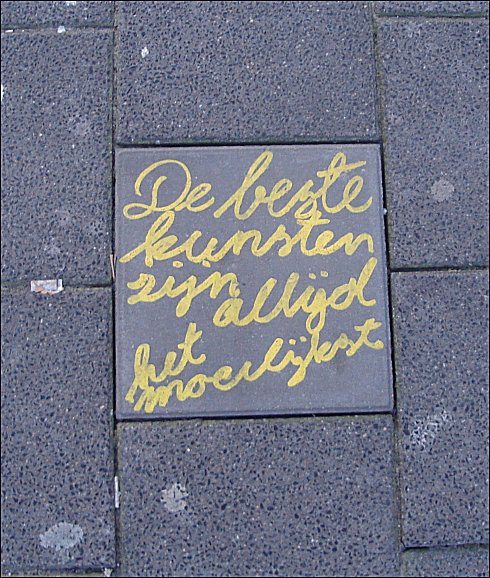 De beste
kunsten
zijn altijd
het
moeilijkst